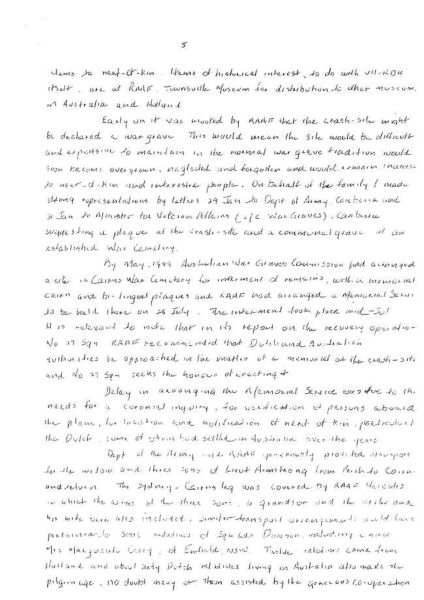 5
items to next-of-kin. Items of historical interest, to do with VH-RDK
itself, are at RAAF, Townsville Museum for distribution to other museums
in Australia and Holland
Early on it was mooted by RAAF that the crash-site might
be declared a war grave. This would mean the site would be difficult
and expensive to maintain in the normal war grave tradition would
soon become overgrown, neglected and forgotten and would remain
to next-of-kin and interested people. On behalf of the family I made
strong representations by letters 29 Jan to Dept of Army, Canberra and
31 Jan to Minister for Veteran Affairs (c/o War Graves), Canberra
suggesting a plaque at the crash-site and a communal grave at an
established War Cemetery.
By May, 1989 Australian War Graves Commission had arranged
a site in Cairns War Cemetery for interment of remains, with a memorial
cairn and bi-lingual plaques and RAAF had arranged a Memorial Servi
to be held there on 28 July. The interment took place mid-Jul
It is relevant to note that in its report on the recovery operatio
No 27 Sqn RAAF recommended that Dutch and Australian
authorities be approached in the matter of a memorial at the crash-sit
and No 27 Sqn seeks the honour of erecting it
Delay in arranging the Memorial Service was due to th
needs for a coronial inquiry, for verification of persons aboard
the plane, for location and notification of next of kin, particularl
the Dutch, some of whom had settled in Australia over the years.
Dept of the Army and RAAF generously provided transport
for the widow and three sons of Lieut Armstrong from Perth to Cairn
and return. The Sydney-Cairns leg was covered by RAAF Hercules
in which the wives of the three sons, a grandson and the writer and
his wife were also included. Similar transport arrangements could have
pertained to some relatives of Sqn Ldr Dawson, including a niece
Mrs Marguerite, of Enfield, NSW. Twelve relatives came from
Holland and about sixty Dutch relatives living in Australia also made the
pilgrimage, no doubt many of them assisted by the generous co-operation